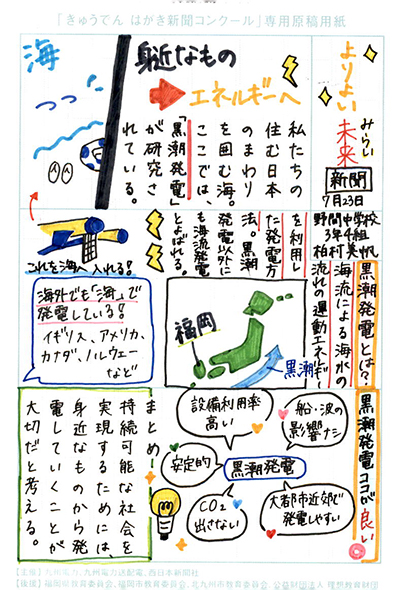 「きゅうでん はがき新聞コンクール」専用原稿用紙
よりよい
みらい
未来
新聞
7月23日
野間中学校
3年4組
柏村美帆
海
身近なもの
エネルギーへ
私たちの
住む日本
のまわり
を囲む海。
ここでは、
「黒潮発電」
が研究さ
れている。
これを海へ入れる!
黒潮発電とは??
海流による海水の
流れの運動エネルギー
を利用し
た発電方
法。黒潮
発電以外に
も海流発電
とよばれる。
福岡
黒潮
海外でも「海」で
発電している!
イギリス、アメリカ、
カナダ、ノルウェー
など
黒潮発電ココが良い
船・波の
影響ナシ
設備利用率
高い
安定的
黒潮発電
CO2
出さない
大都市近郊で
発電しやすい
まとめ
持続可能な社会を
実現するためには、
身近なものから発
電していくことが
大切だと考える。
【主催】九州電力、九州電力送配電、西日本新聞社
【後援】福岡県教育委員会、福岡市教育委員会、北九州市教育委員会、公益財団法人 理想教育財団